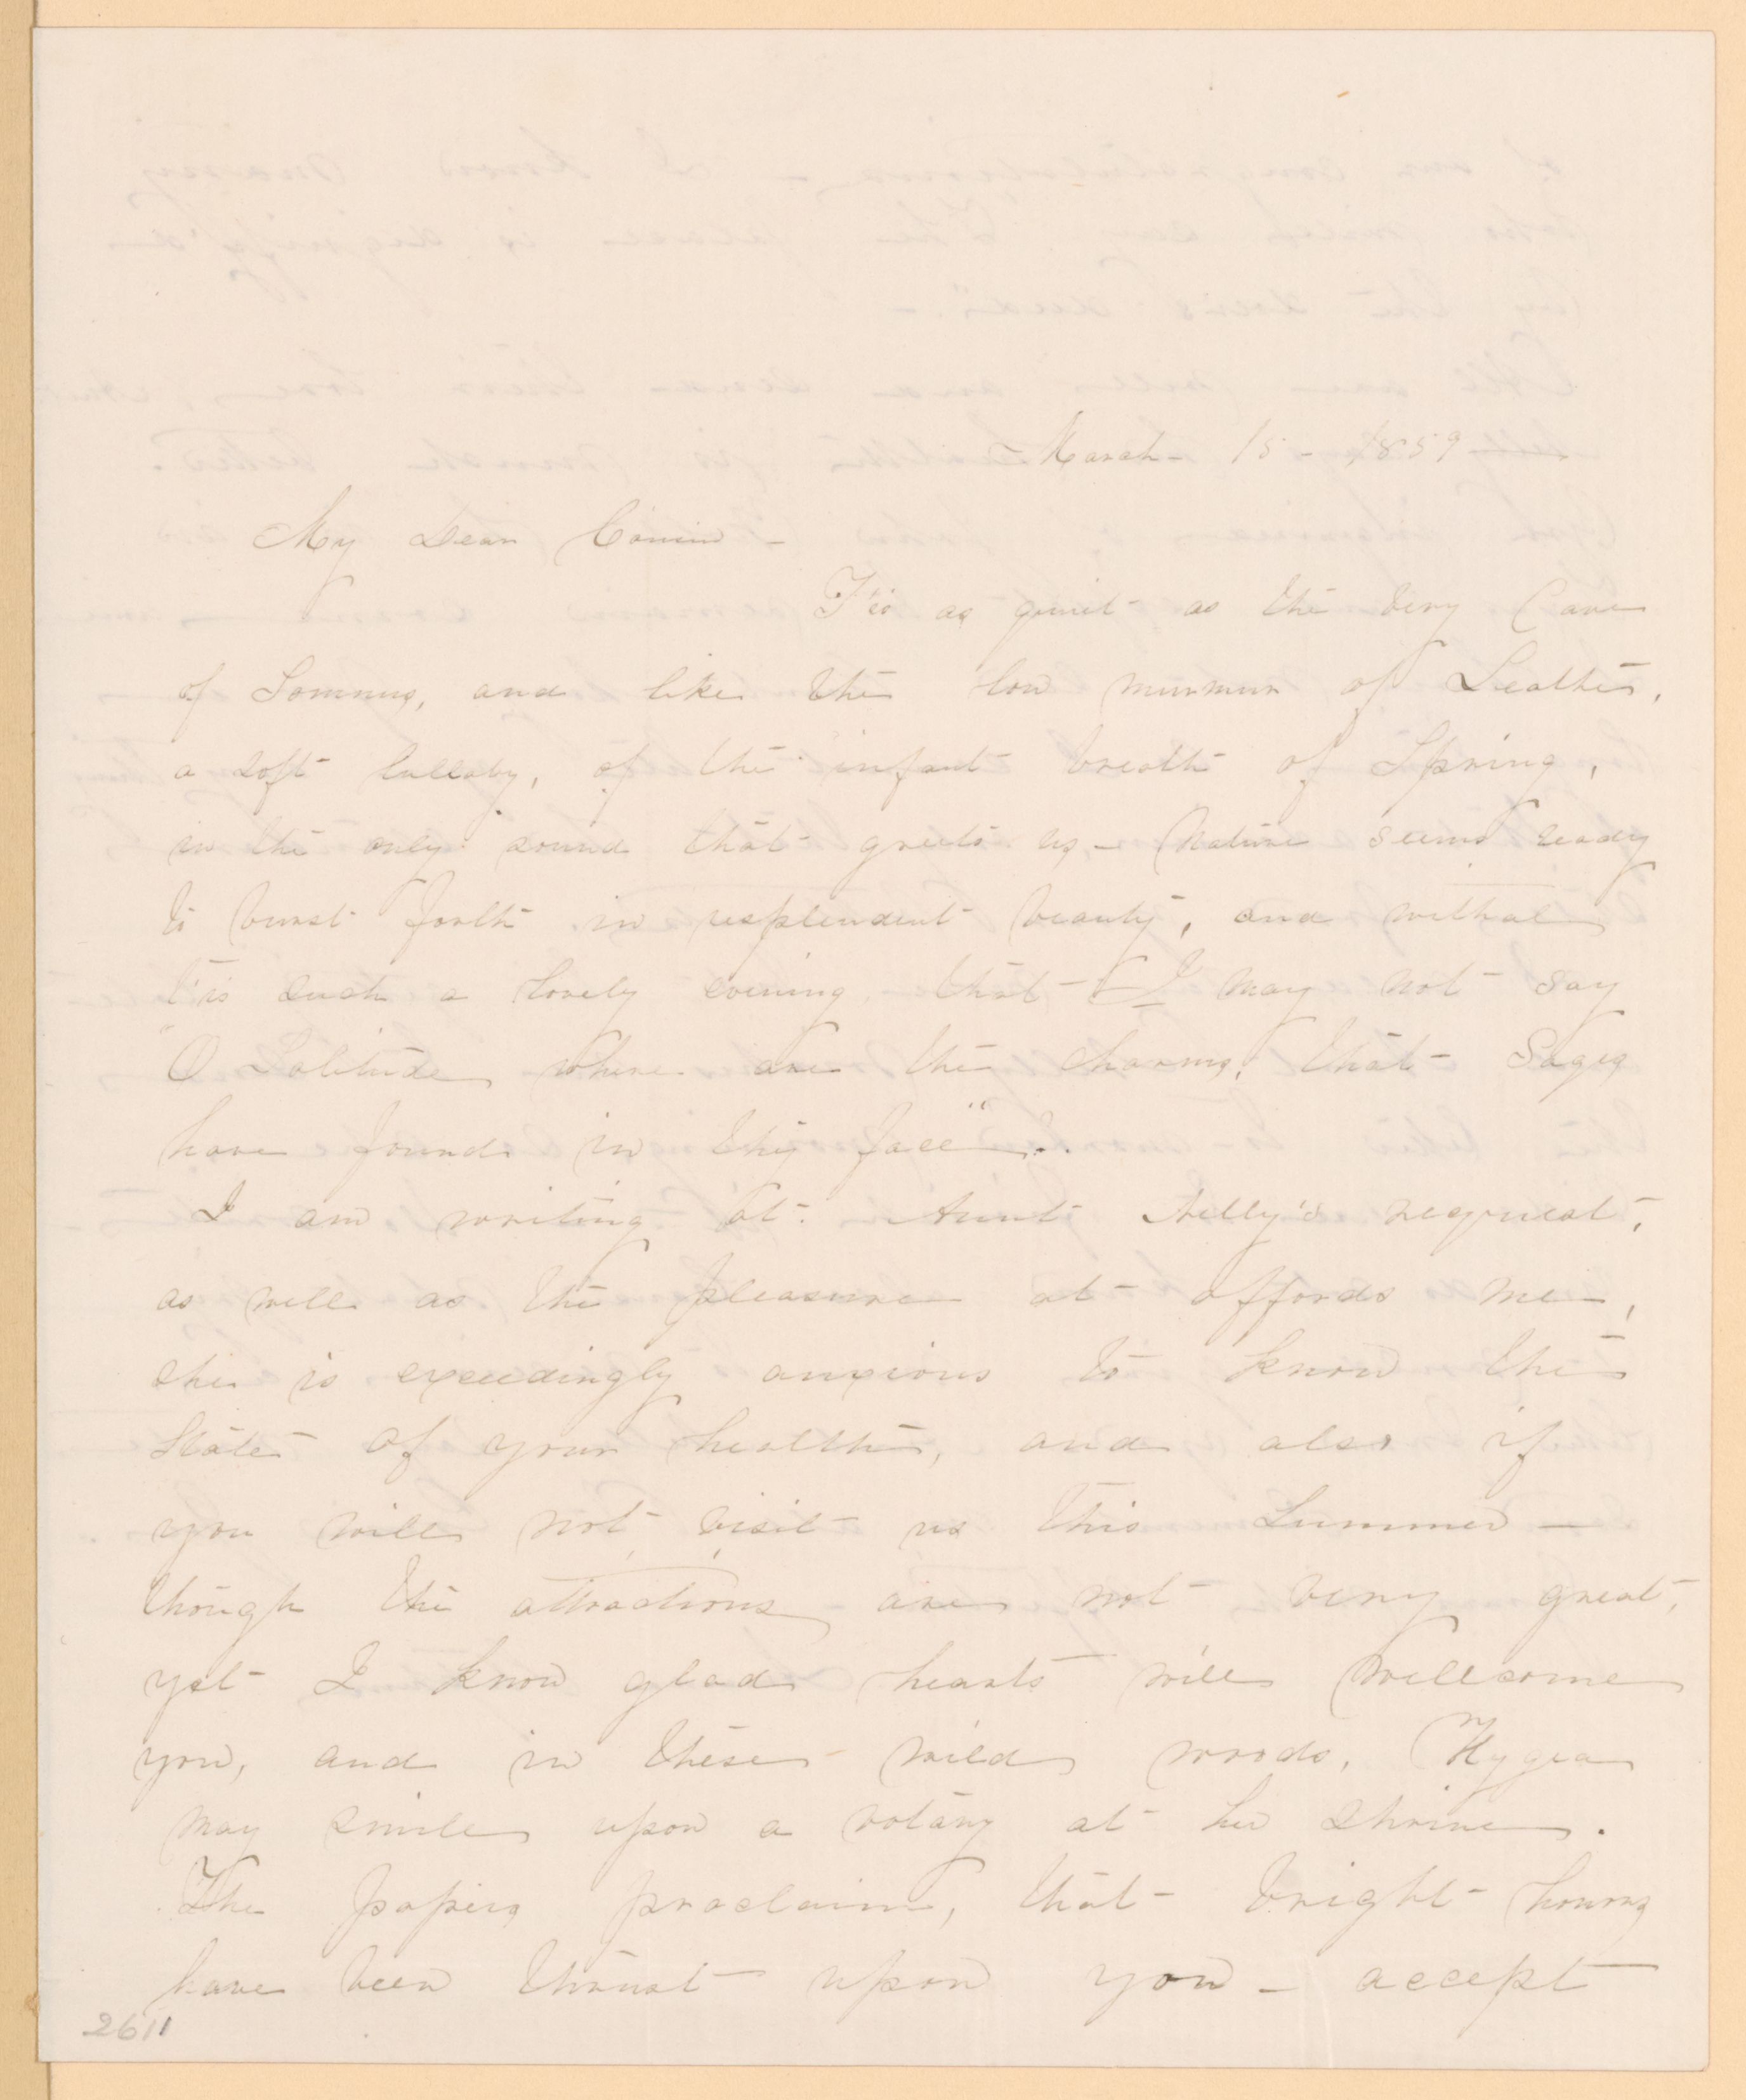 March - 15 - 1859
My Dear Cousin -
T'is as quiet as the very Cave
of Somnus, and like the low murmur of Leathe,
a soft lullaby, of the infant breath of Spring,
is the only sound that greets us - Nature seems ready
to burst forth in resplendent beauty, and withal
t'is such a lovely evening that - I may not say
"O Solitude where are the charms, that Sages
have found in thy face"?.
I am writing at Aunt Nelly's request,
as well as the pleasure it affords me,
she is exceedingly anxious to know the
State of your health, and also if
you will not visit us this Summer -
though the attractions are not very great,
yet I know glad hearts will wellcome
you, and in these wild woods, Hygea
may smile upon a votary at her shrine.
The papers proclaim, that bright honors
have been thrust upon you - accept
2611